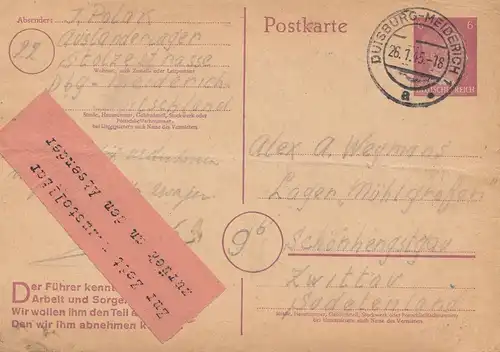 Absender: J. Polak
22
Ausländerlager
Stolzestrasse
Wohnort, auch Zustell- oder Leitpostamt
Dbg-Meiderich
Deutschland
Straße, Hausnummer, Gebäudeteil, Stockwerk oder
Postschließfachnummer,
bei Untermietern auch Name des Vermieters
Zur Zeit unzustellbar
zurück an den Absender
Der Führer kenn
Arbeit und Sorge
Wir wollen ihm den Teil
den wir ihm abnehmen k
Postkarte
DUISBURG-MEIDERICH 1
26.7.45.-18
a
6
DEUTSCHES REICH
Alex A. Weymans
Lager Mühlgrafen
9b
Schönhengstgau
Zwittau
Sudetenland
Straße, Hausnummer, Gebäudeteil, Stockwerk oder Postschließfachnummer
bei Untermietern auch Name des Vermieters